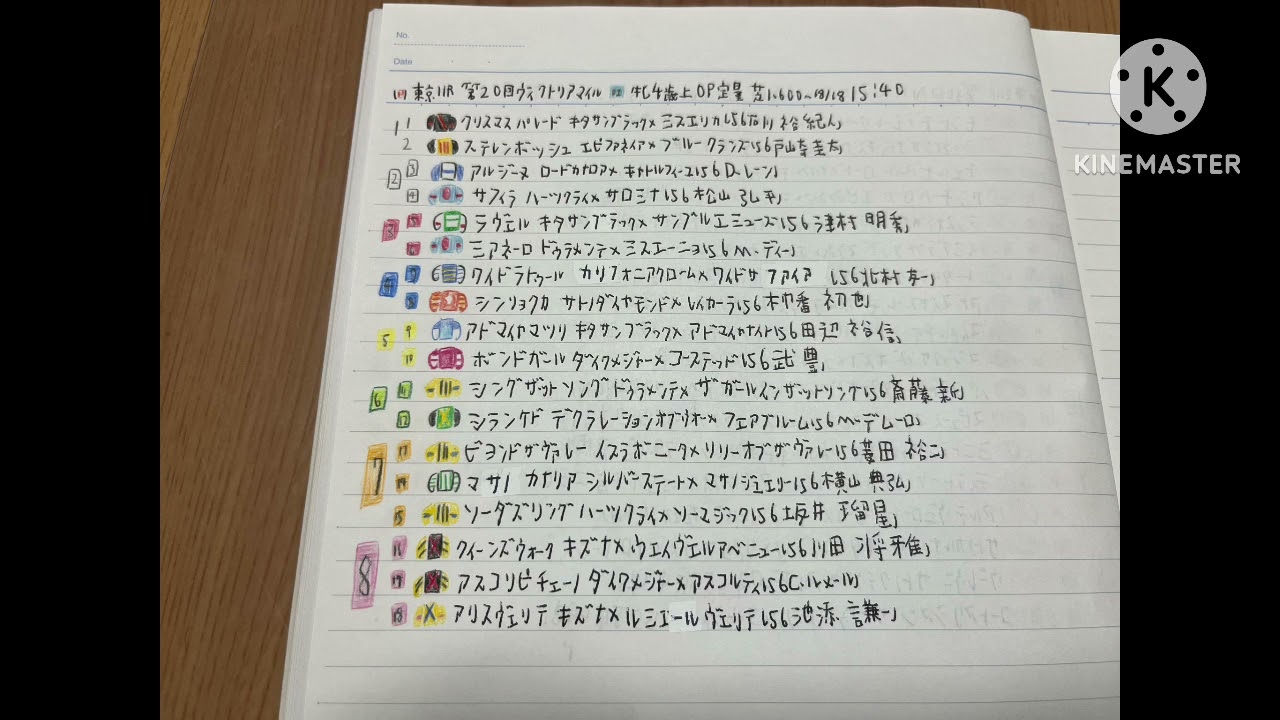 No.
Date
東京11R 第20回ヴィクトリアマイル 牝4歳上OP定量 芝1,600m 18/18 15:40
1 1 クリスマスパレード キタサンブラック×ミスエリカ 56 石川 裕紀人
2 ステレンボッシュ エピファネイア×ブルークランズ 56 戸崎圭太
2 3 アルジーヌ ロードカナロア×キャトルフィーユ 56 D.レーン
4 サフィラ ハーツクライ×サロミナ 56 松山 弘平
3 5 ラヴェル キタサンブラック×サンブルエミューズ 56 津村 明秀
6 ミアネーロ ドゥラメンテ×ミスエーニョ 56 M.ディー
4 7 ワイドラトゥール カリフォニアクローム×ワイドサファイア 56 北村 友一
8 シンリョクカ サトノダイヤモンド×レイカーラ 56 木幡 初也
5 9 アドマイヤマツリ キタサンブラック×アドマイヤナイト 56 田辺 裕信
10 ボンドガール ダイワメジャー×コーステッド 56 武 豊
6 11 シングザットソング ドゥラメンテ×ザガールインザットソング 56 斎藤 新
12 シランケド デクラレーションオブウォー×フェアブルーム 56 M.デムーロ
7 13 ビヨンドザヴァレー イスラボニータ×リリーオブザヴァレー 56 菱田 裕二
14 マサノカナリア シルバーステート×マサノジュエリー 56 横山 典弘
15 ソーダズリング ハーツクライ×ソーマジック 56 坂井 瑠星
8 16 クイーンズウォーク キズナ×ウェイヴェルアベニュー 56 川田 将雅
17 アスコリピチェーノ ダイワメジャー×アスコルティ 56 C.ルメール
18 アリスヴェリテ キズナ×ルミエールヴェリテ 56 池添 謙一
K
KINEMASTER